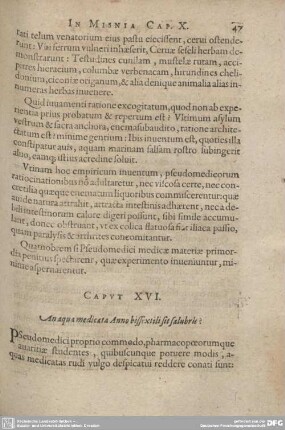 IN MISNIA CAP. X. 47
rati telum venatorium eius pastu eiecissent, cerui ostende-
runt: Vbi ferrum vulneri inhæserit, Ceruæ seseli herbam de-
monstrarunt: Testudines cunilam, mustelæ rutam, acci-
pitres hieracium, columbæ verbenacam, hirundines cheli-
donium, ciconiæ origanum, & alia denique animalia alias in-
numeras herbas inuenere.
Quid inuamenti ratione excogitatum, quod non ab expe-
rientia prius probatum & repertum est? Vltimum asylum
vestrum & sacra anchora, enema ratione archite-
ctatum est minime gentium: Ibis inuentum est, quoties illa
constipatur auis, aquam marinam salsam rostro
aluo, eamque istius acredine soluit.
Vtinam hoc empiricum inuentum, pseudomedicorum
ratiocinationibus nō adultaretur, nec viscosa certe, nec con-
liquoribus commiscerentur: quæ
natura attrahit, attracta intestinis adhærent, nec a de-
bili intestinorum calore digeri possunt, sibi simile accumu-
lant, donec obstruant, vt ex colica flatuosa fiat iliaca passio,
quam paralysis & arthrites concomitantur.
Quamobrem si Pseudomedici medicæ materiæ primor-
dia penitus spectarent, quæ experimento inueniuntur, mi-
nime aspernarentur.
CAPVT XVI.
An aqua medicata Anno bissextili sit salubris?
Pseudomedici proprio commodo, pharmacopœorumque
auaritiæ studentes, quibuscunque potuere modis, a-
quas medicatas rudi vulgo despicatui reddere conati sunt